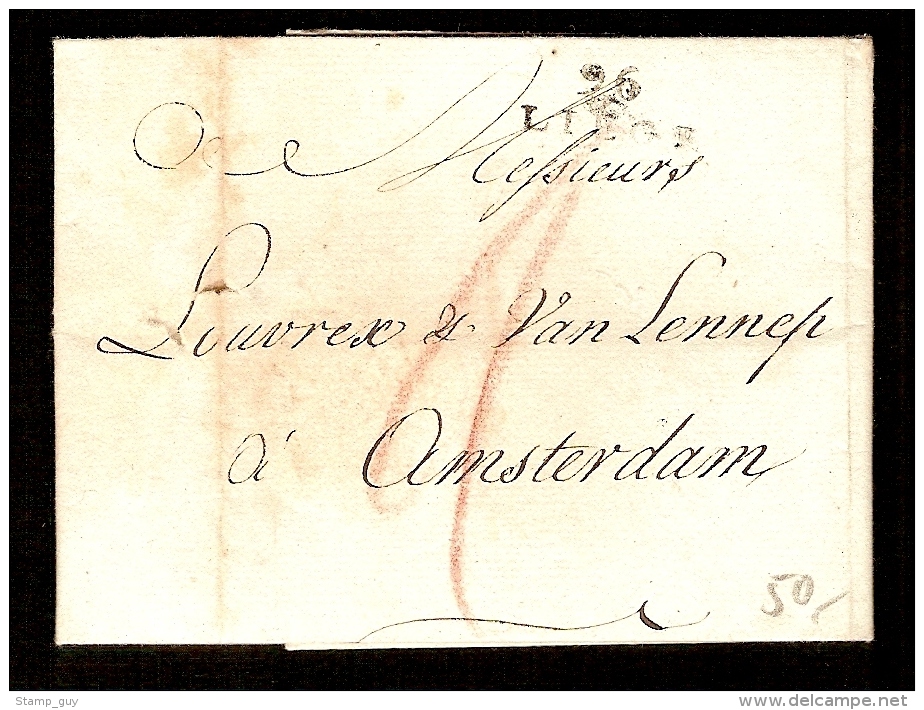 96
LIEGE
Messieurs
Louvrex & Van Lennep
à Amsterdam
50,-
Stamp_guy
delcampe.net